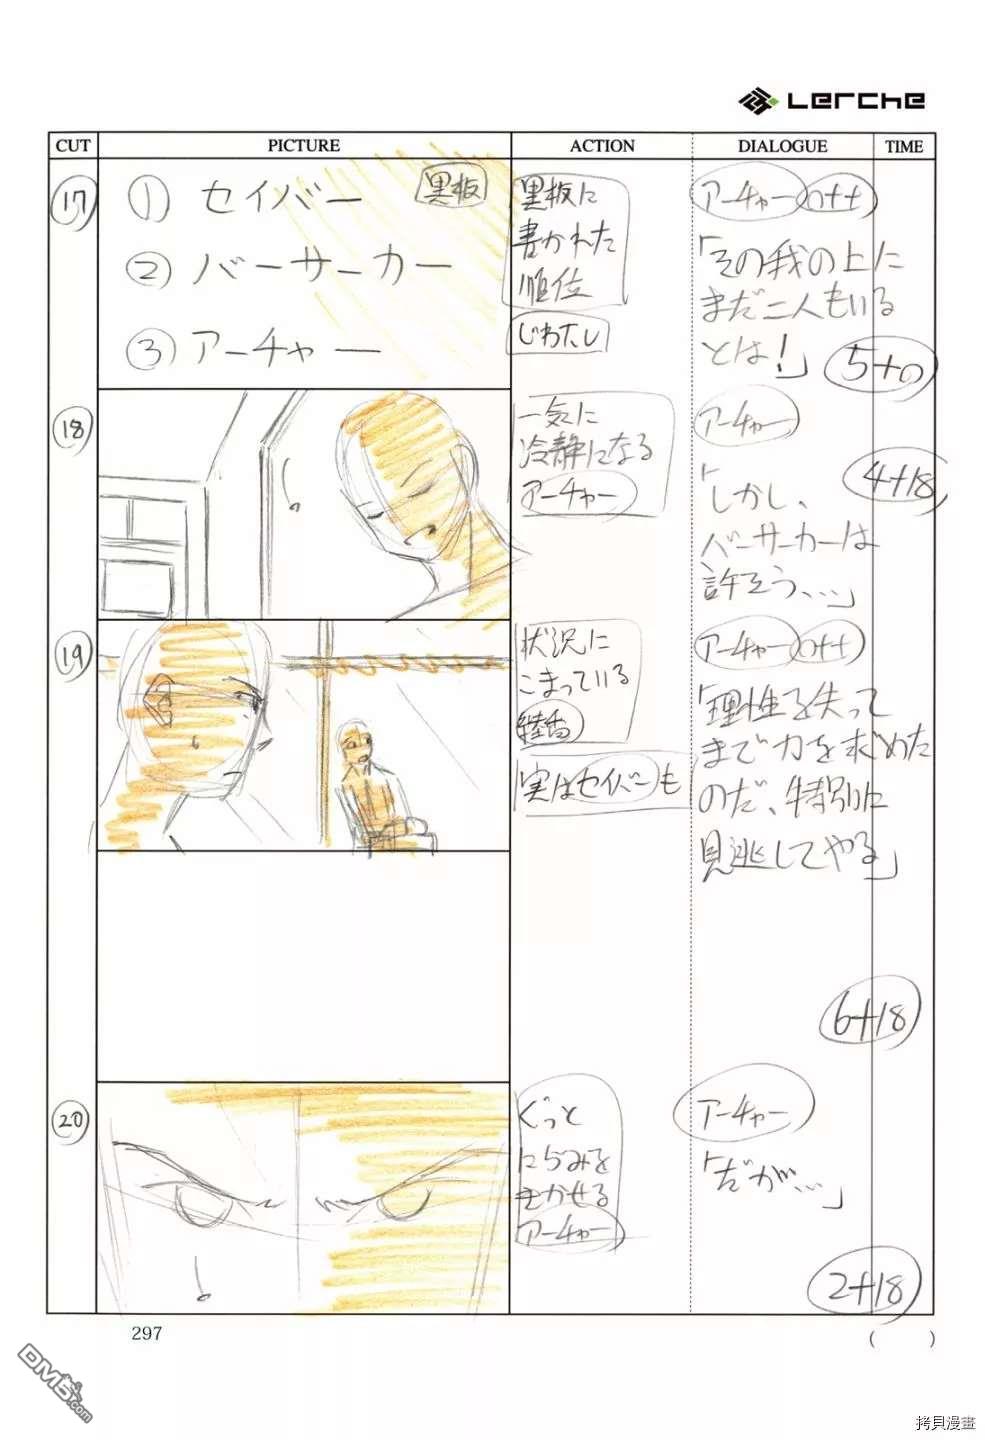 Lerche
CUT PICTURE ACTION DIALOGUE TIME
17
① セイバー
② バーサーカー
③ アーチャー
黒板
黒板に
書かれた
順位
じわたし
アーチャー off
「その我の上に
まだ二人もいる
とは!」
5+0
18
一気に
冷静になる
アーチャー
アーチャー
「しかし、
バーサーカーは
許そう、、、」
4+18
19
状況に
こまっている
綾香
実はセイバーも
アーチャー off
「理性を失って
まで力を求めた
のだ、特別に
見逃してやる」
6+18
20
ぐっと
にらみを
きかせる
アーチャー
アーチャー
「だが、、、」
2+18
297
( )
DM5.com
拷貝漫畫